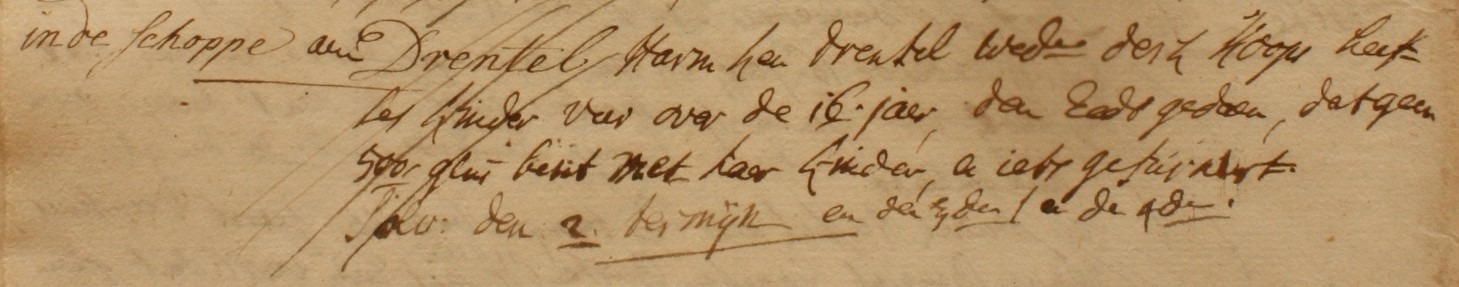 in de Schoppe aen Drentel Harm hen Drentel wede der h Hoops heeft
ses kinder vier over de 16. jaer, den Eedt gedaen, dat geen
500 gl: besit met haer kinder, en iets gesuivert.
Solv: den 2. termijn en den 3den / en de 4de.